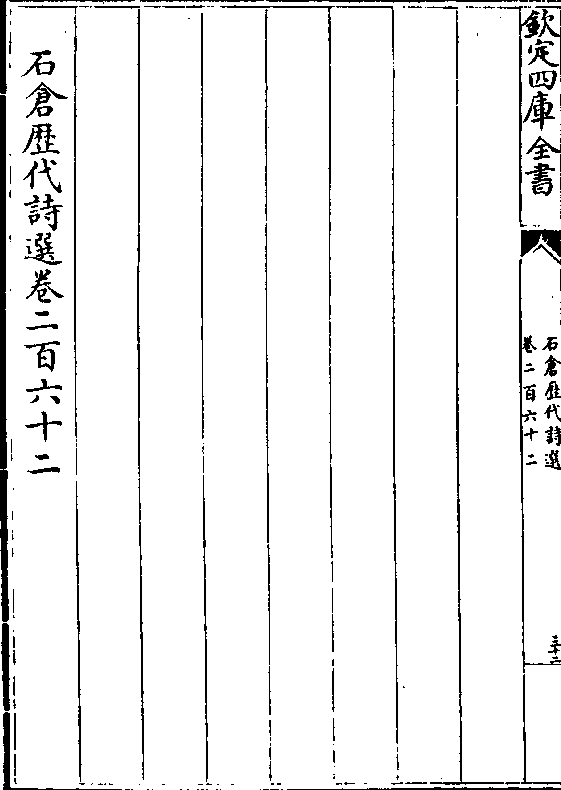 欽定四庫全書
石倉歷代詩選
卷二百六十二
三十二
石倉歷代詩選卷二百六十二